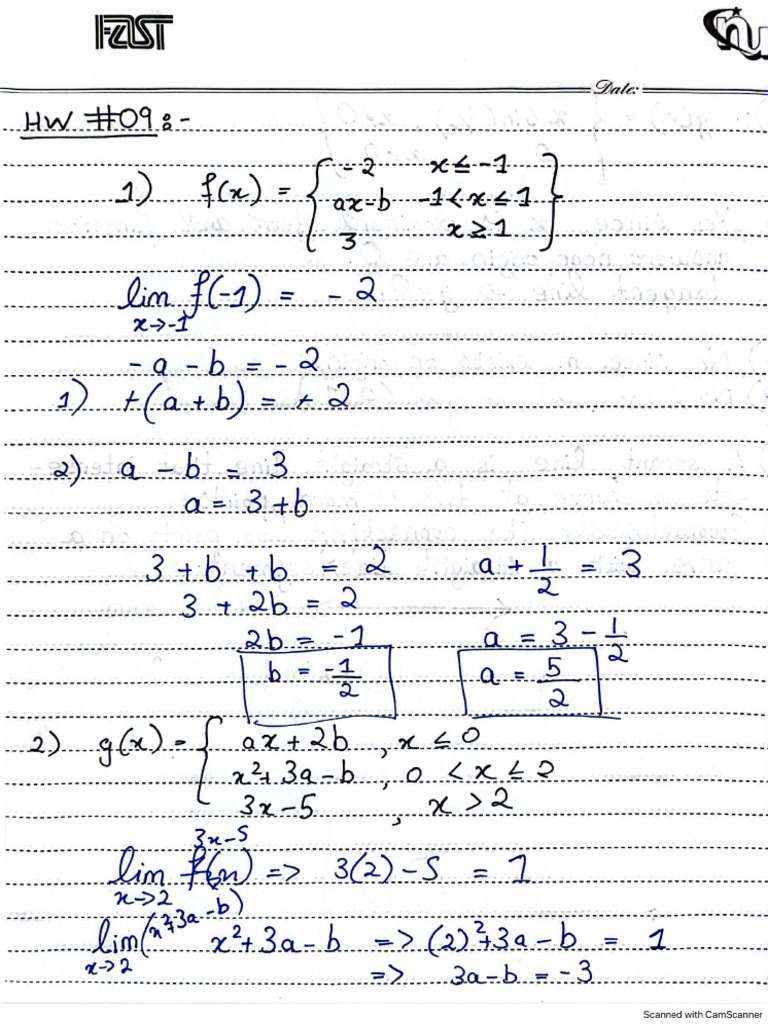 FAST
nu
Date:
HW #09:-
1) f(x) = { -2 x ≤ -1
ax-b -1 < x ≤ 1
3 x ≥ 1 }
lim f(-1) = -2
x→-1
-a - b = -2
1) +(a + b) = + 2
2) a - b = 3
a = 3 + b
3 + b + b = 2 a + 1/2 = 3
3 + 2b = 2
2b = -1 a = 3 - 1/2
b = -1/2 a = 5/2
2) g(x) = { ax + 2b , x ≤ 0
x² + 3a - b , 0 < x ≤ 2
3x - 5 , x > 2
3x-5
lim f(x) => 3(2) - 5 = 1
x→2
lim (x²+3a-b) x² + 3a - b => (2)² + 3a - b = 1
x→2 => 3a - b = -3
Scanned with CamScanner